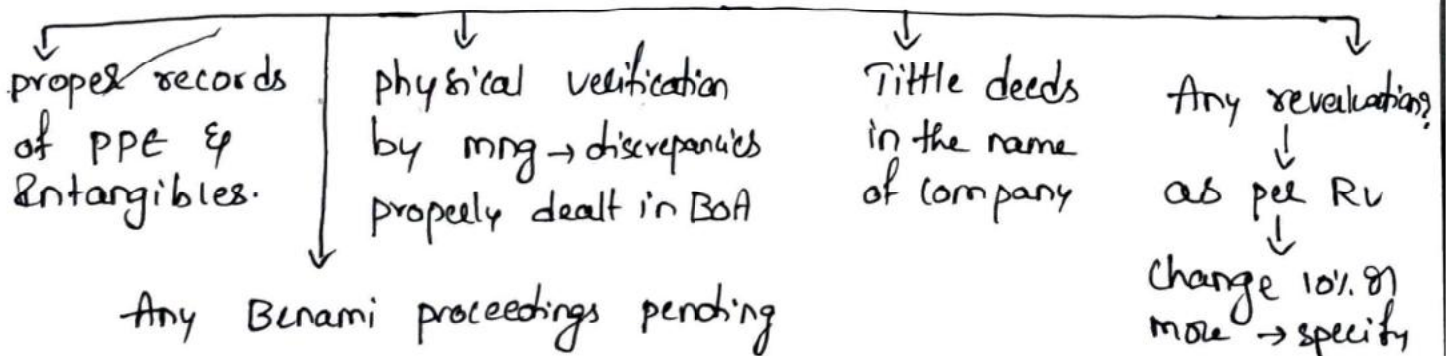 proper records
of PPE &
Intangibles.
physical verification
by mng → discrepancies
properly dealt in BOA
Tittle deeds
in the name
of company
Any revaluation?
↓
as per RV
↓
Change 10% or
more → specify
Any Benami proceedings pending